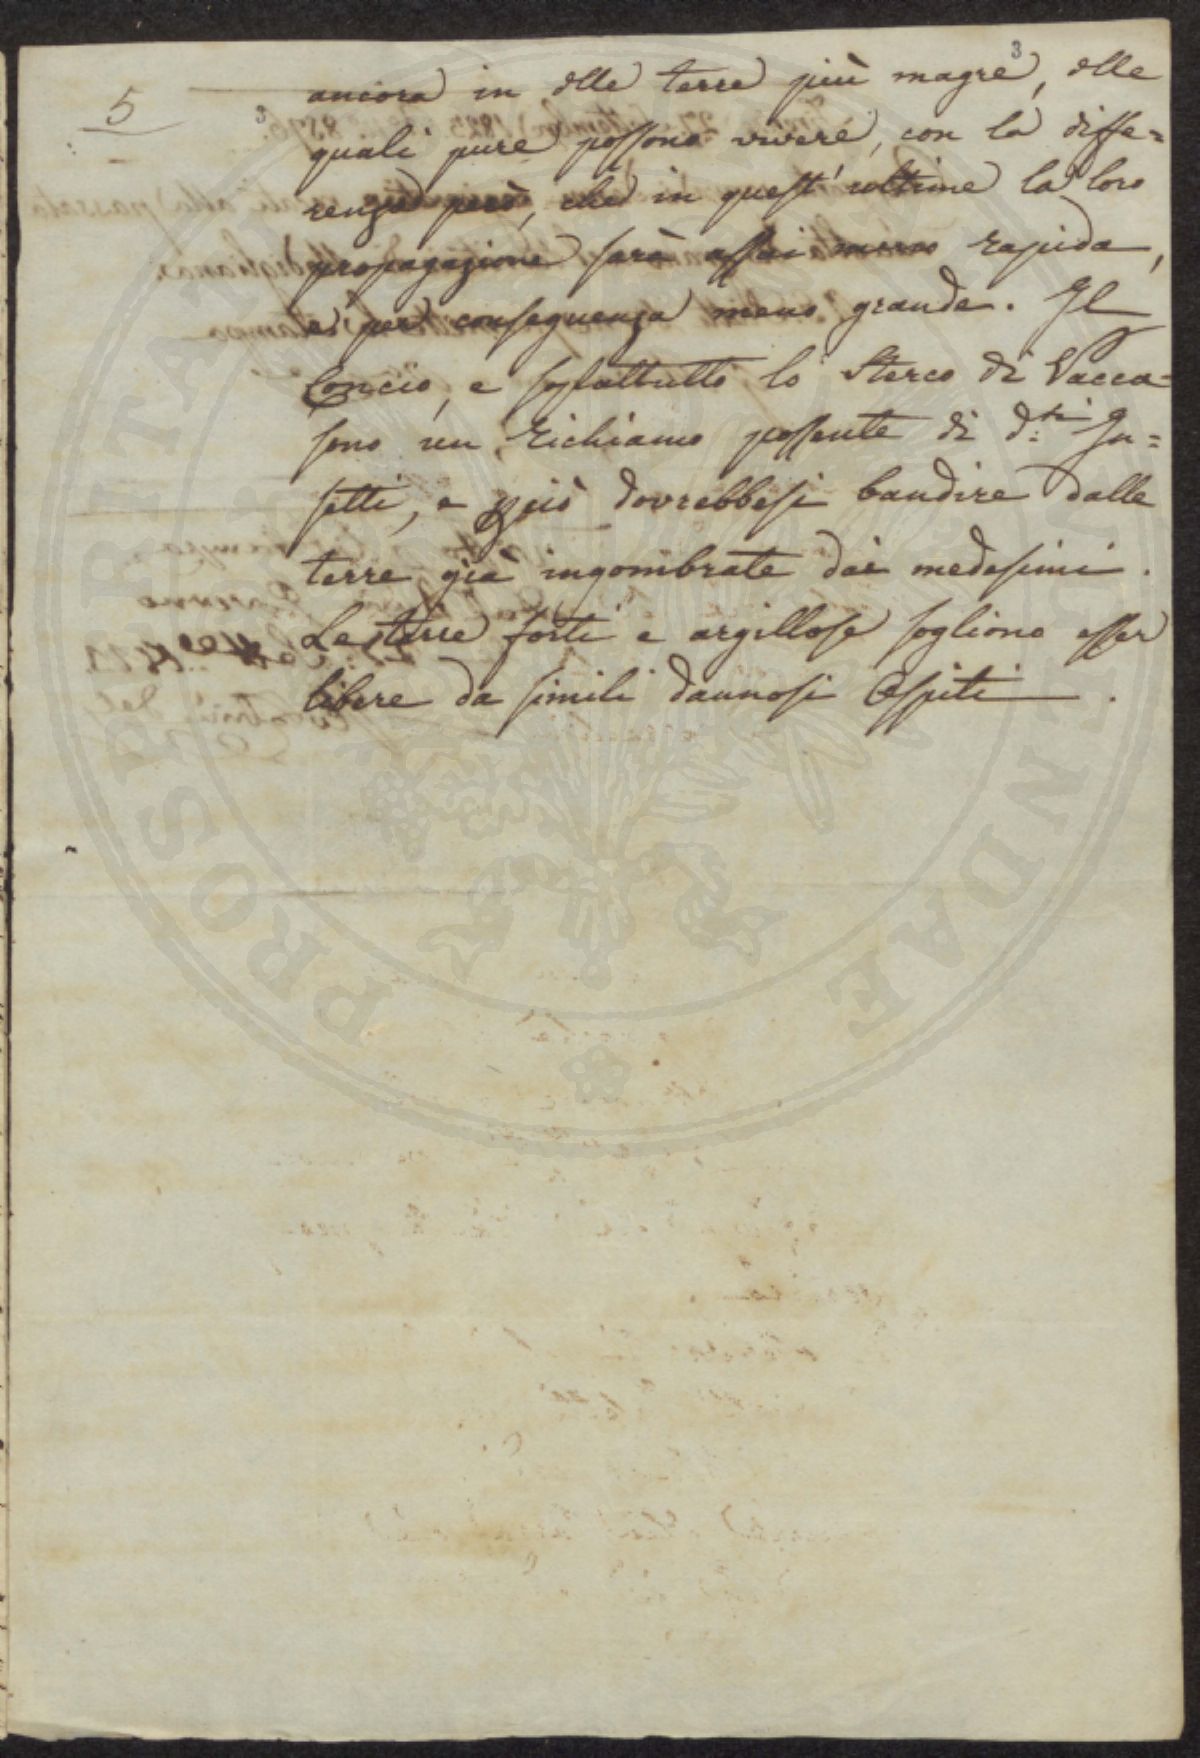 3
5
ancora in elle terre più magre, elle
quali pure possono vivere, con la diffe=
renza però, che in quest' ultime la loro
propagazione sarà assai meno rapida,
e per conseguenza meno grande. Il
Concio, e soprattutto lo Sterco di Vacca
sono un richiamo possente di d.ti In=
setti, e ciò dovrebbesi bandire dalle
terre già ingombrate dai medesimi.
Le terre forti e argillose sogliono esser
libere da simili dannosi Ospiti.
PROSPERITATI AUGENDAE